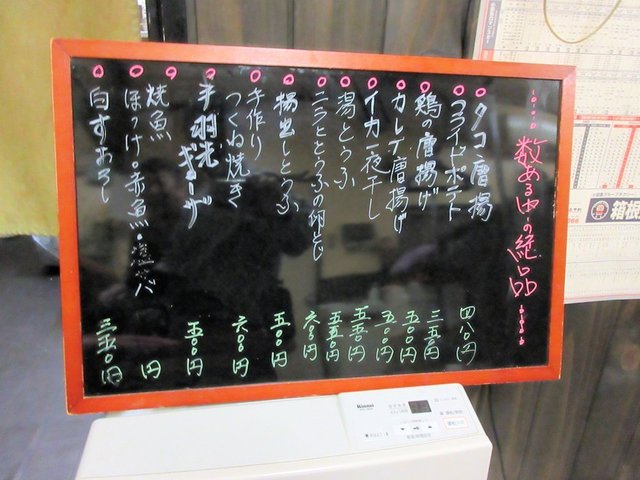 数ある中の絶品
タコ唐揚 四八〇円
フライドポテト 三五〇円
鶏の唐揚げ 五〇〇円
カレイ唐揚げ 五〇〇円
イカ一夜干し 五五〇円
湯とうふ 五五〇円
ニラととうふの卵とじ 六〇〇円
揚出しとうふ 五〇〇円
手作り
つくね焼き 六〇〇円
手羽先
ギョーザ 五〇〇円
焼魚
ほっけ。赤魚・塩サバ 円
白すおろし 三五〇円
箱根
Rinnai